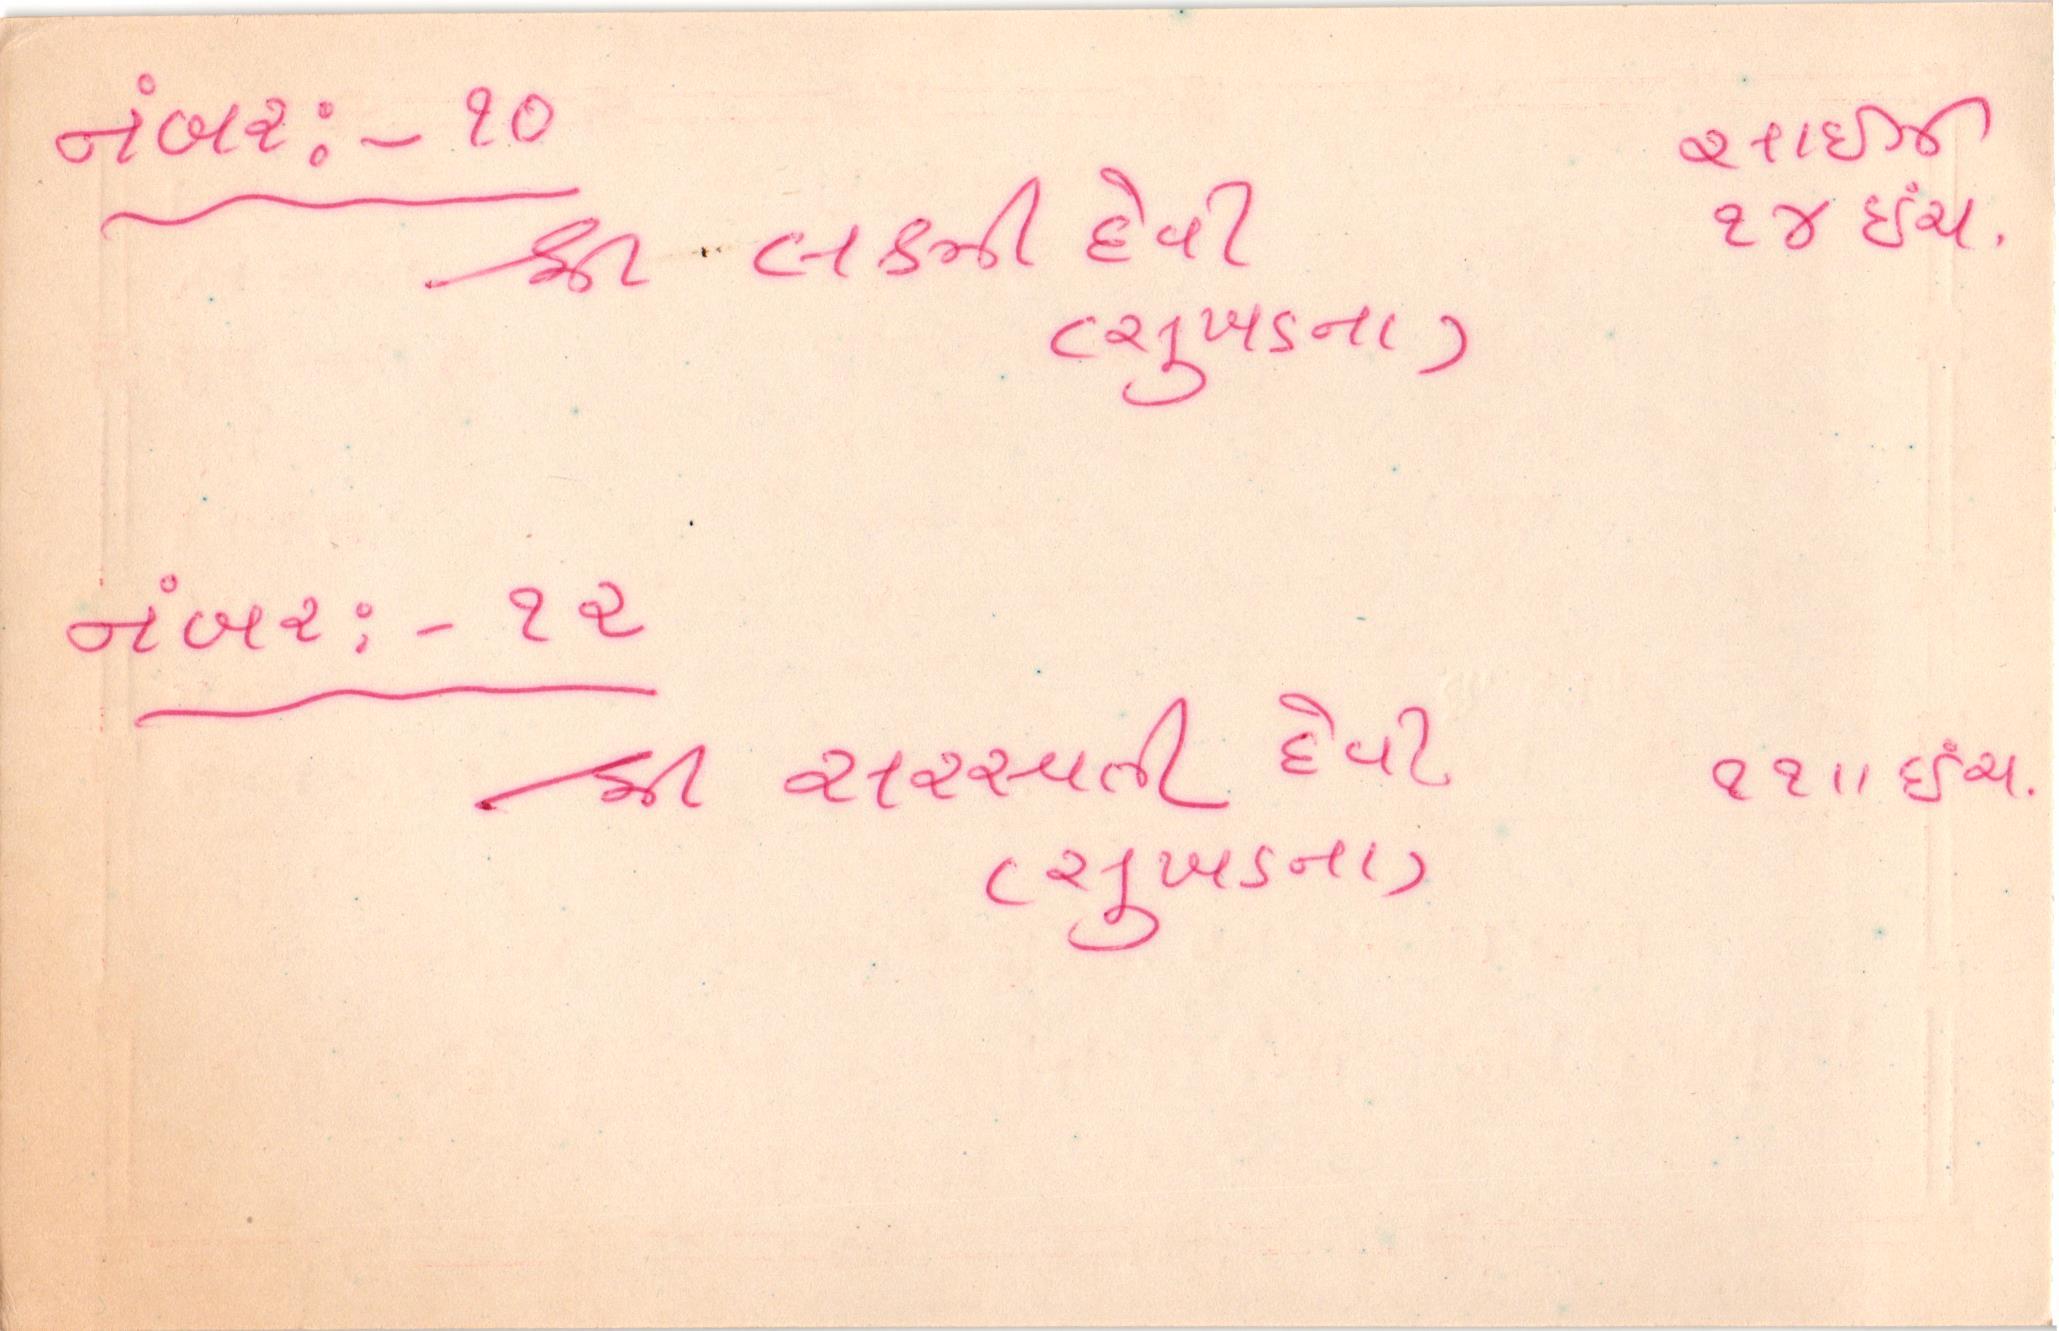 નંબર:- ૧૦
સાઈઝ
શ્રી લક્ષ્મી દેવી
૧૪ ઇંચ.
(સુખડના)
નંબર:- ૧૨
શ્રી સરસ્વતી દેવી ૧૧॥ ઇંચ.
(સુખડના)